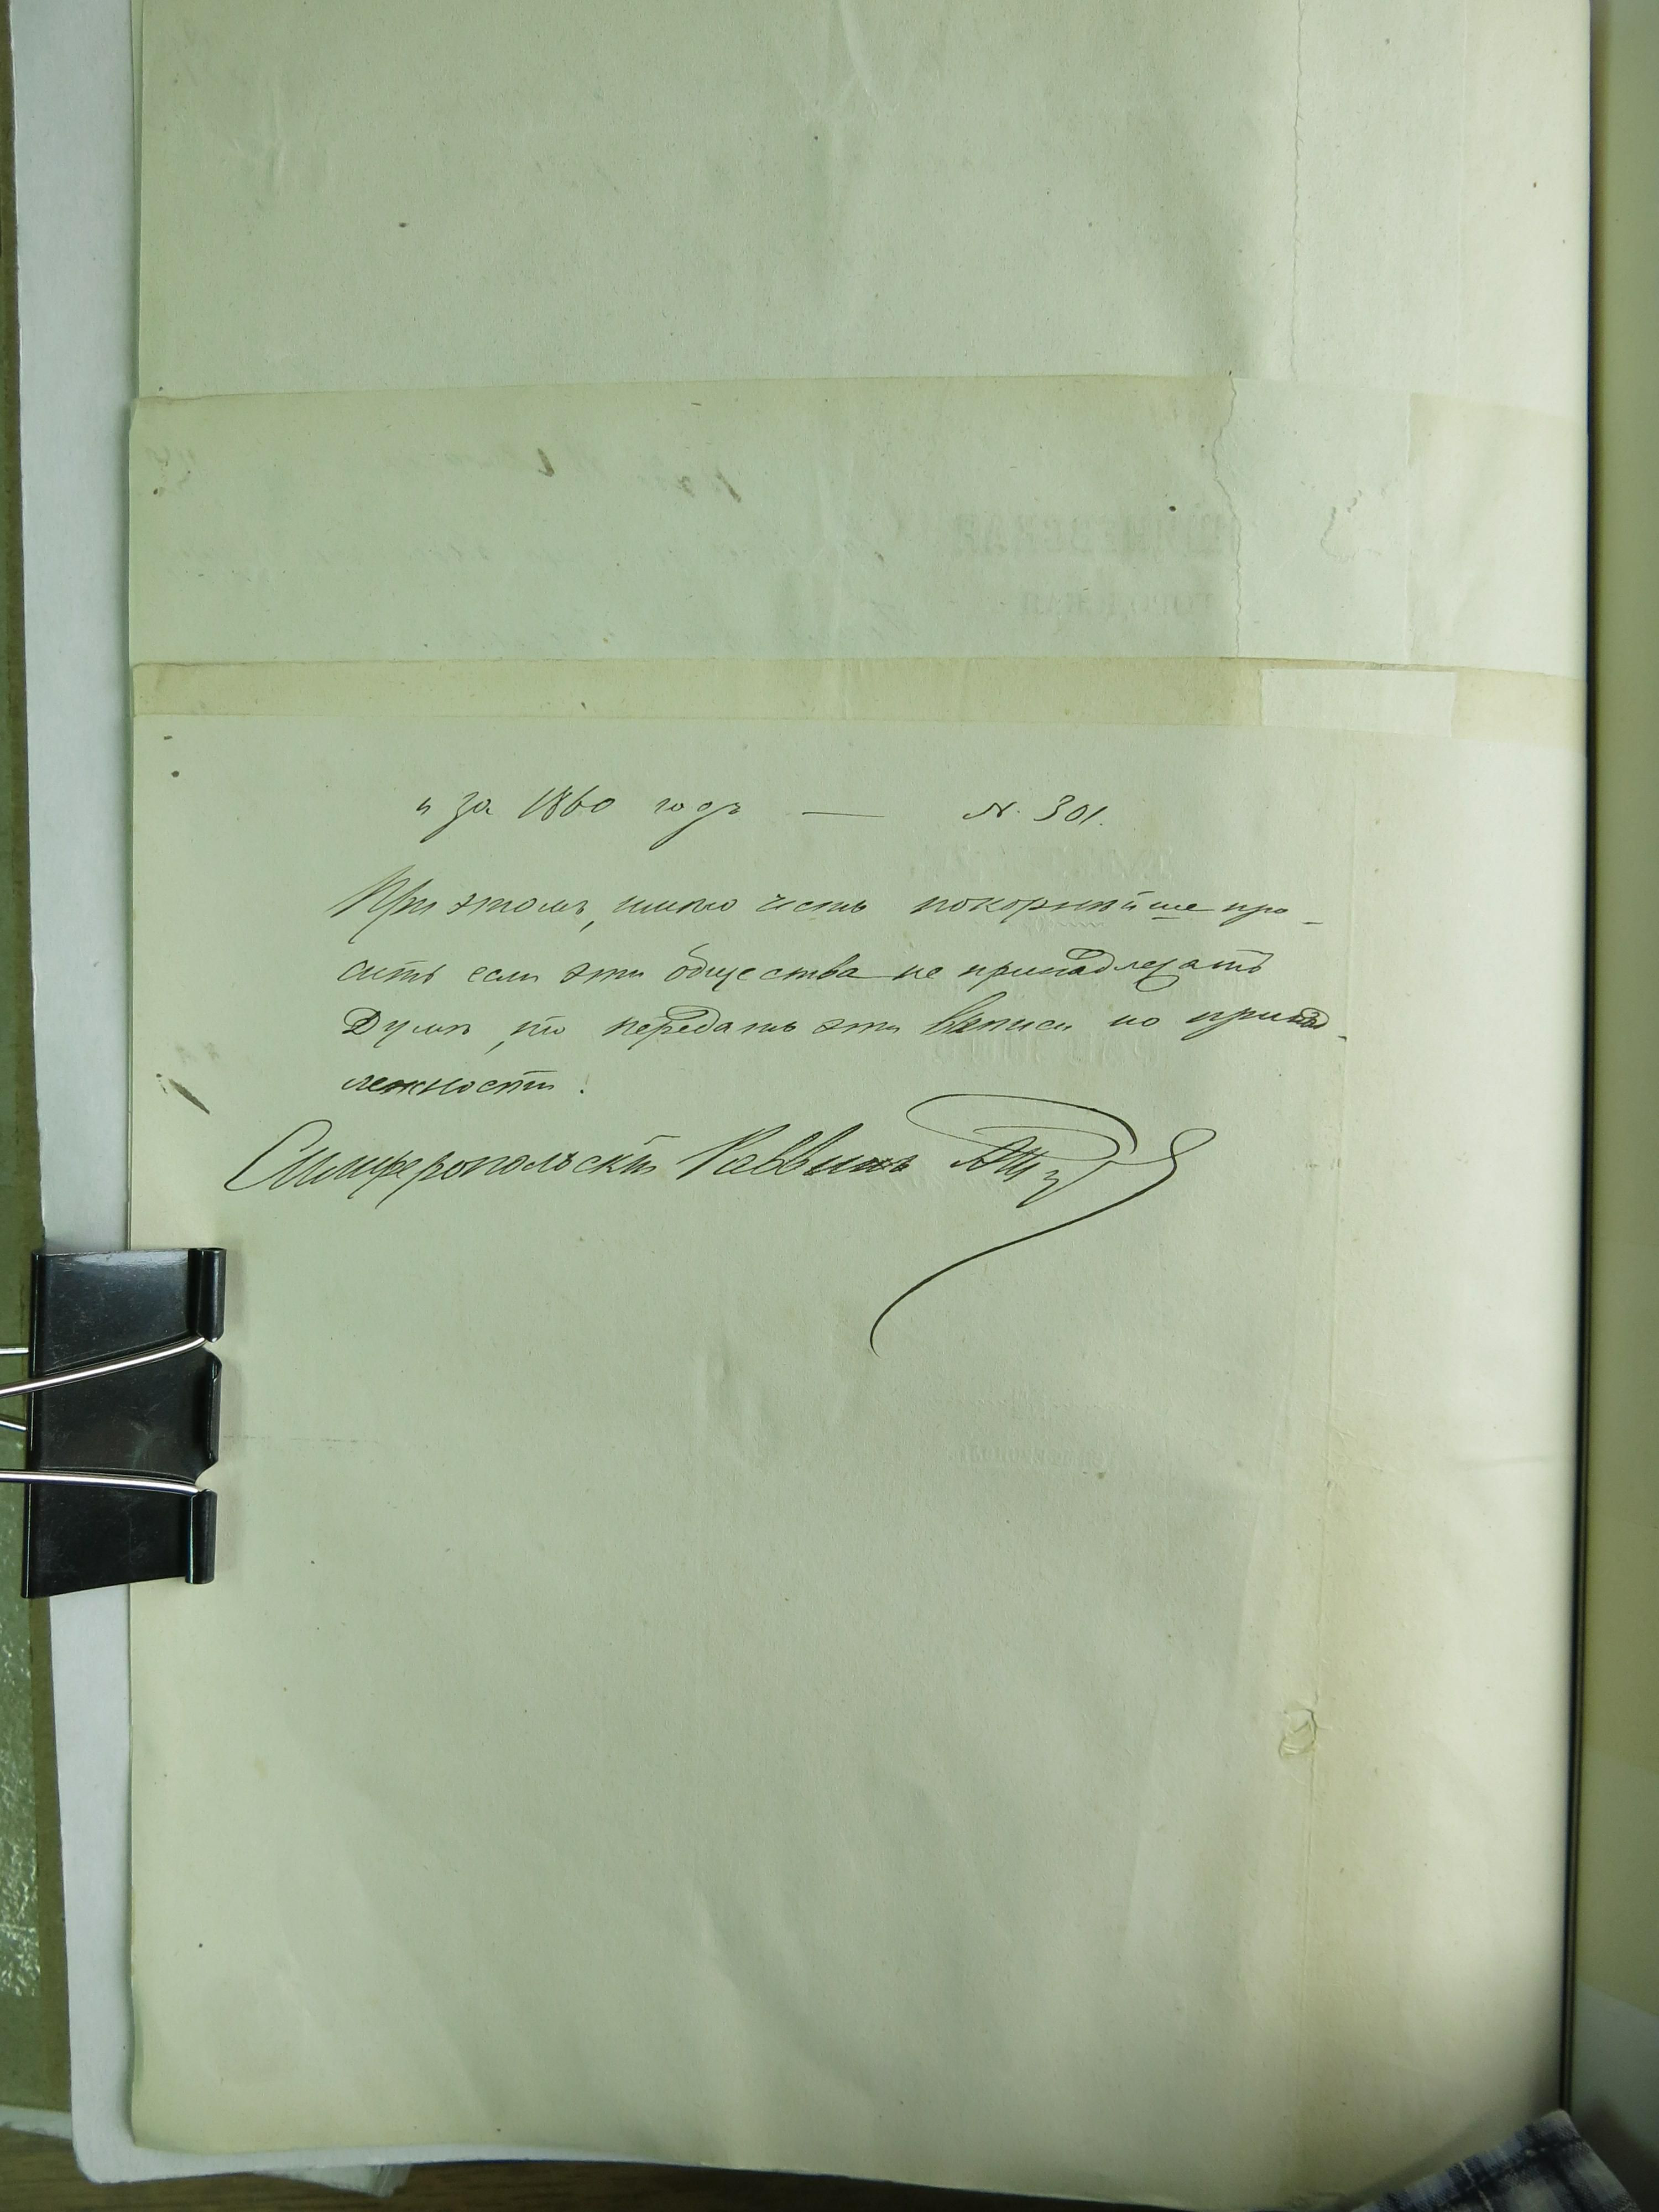 и за 1860 годъ — N. 301.
При этомъ, имѣю честь покорнѣйше про-
сить если эти общества не принадлежатъ
Думѣ, то передать эти выписи по принад-
лежности.
Симферопольскій Раввинъ